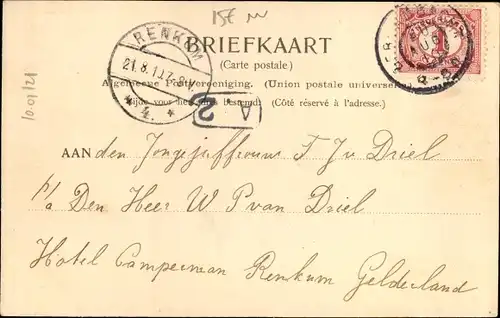 15E
RENKUM
21.8.1
4.
BRIEFKAART
(Carte postale)
Algemeene Postvereeniging. (Union postale universelle)
Zijde voor het adres bestemd. (Côté réservé à l'adresse.)
A 2
AAN den Jongejuffrouw F J v Driel
p/a Den Heer W P van Driel
Hotel Campenman Renkum Gelderland